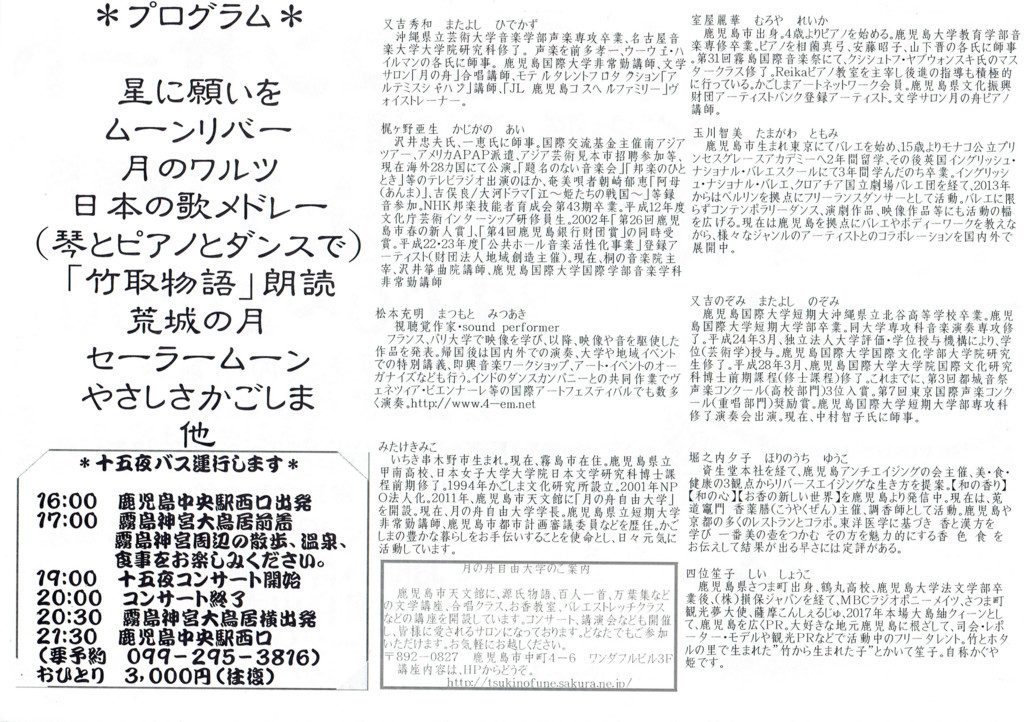 ＊プログラム＊
星に願いを
ムーンリバー
月のワルツ
日本の歌メドレー
（琴とピアノとダンスで）
「竹取物語」朗読
荒城の月
セーラームーン
やさしさかごしま
他
＊十五夜バス運行します＊
16:00 鹿児島中央駅西口出発
17:00 霧島神宮大鳥居前着
霧島神宮周辺の散歩、温泉、
食事をお楽しみください。
19:00 十五夜コンサート開始
20:00 コンサート終了
20:30 霧島神宮大鳥居横出発
21:30 鹿児島中央駅西口
(要予約 099-295-3816)
おひとり 3,000円(往復)
又吉秀和 またよし ひでかず
沖縄県立芸術大学音楽学部声楽専攻卒業、名古屋音
楽大学大学院研究科修了。声楽を前多孝一、ウーヴェ・ハ
イルマンの各氏に師事。鹿児島国際大学非常勤講師、文学
サロン「月の舟」合唱講師、モデルタレントプロダクション「ア
ルテミスジャパン」講師、「JL 鹿児島コスヘルファミリー」ヴ
ォイストレーナー。
梶ヶ野亜生 かじがの あい
沢井忠夫氏、一恵氏に師事。国際交流基金主催南アジア
ツアー、アメリカAPAP派遣、アジア芸術見本市招聘参加等、
現在海外28カ国にて公演。「題名のない音楽会」「邦楽のひと
とき」等のテレビラジオ出演のほか、奄美唄者朝崎郁恵「阿母
（あんま）」、吉俣良/大河ドラマ「江～姫たちの戦国～」等録
音参加。NHK邦楽技能者育成会第43期卒業。平成12年度
文化庁芸術インターンシップ研修員生。2002年「第26回鹿児
島市春の新人賞」、「第4回鹿児島銀行財団賞」の同時受
賞。平成22・23年度「公共ホール音楽活性化事業」登録ア
ーティスト(財団法人地域創造主催)。現在、桐の音楽院主
宰、沢井箏曲院講師、鹿児島国際大学国際学部音楽学科
非常勤講師
松本充明 まつもと みつあき
視聴覚作家・sound performer
フランス、パリ大学で映像を学び、以降、映像や音を駆使した
作品を発表。帰国後は国内外での演奏、大学や地域イベント
での特別講義、即興音楽ワークショップ、アート・イベントのオー
ガナイズなども行う。インドのダンスカンパニーとの共同作業でヴ
ェネツィア・ビエンナーレ等の国際アートフェスティバルでも数多
く演奏。http://www.4-em.net
みたけきみこ
いちき串木野市生まれ。現在、霧島市在住。鹿児島県立
甲南高校、日本女子大学大学院日本文学研究科博士課
程前期修了。1994年かごしま文化研究所設立、2001年NP
O法人化。2011年、鹿児島市天文館に「月の舟自由大学」
を開設。現在、月の舟自由大学学長。鹿児島県立短期大学
非常勤講師、鹿児島市都市計画審議委員などを歴任。かご
しまの豊かな暮らしをお手伝いすることを使命とし、日々元気に
活動しています。
月の舟自由大学のご案内
鹿児島市天文館に、源氏物語、百人一首、万葉集など
の文学講座、合唱クラス、お香教室、バレエストレッチクラス
などの講座を開設しています。コンサート、講演会なども開催
し、皆様に愛されるサロンになっております。どなたでもご参加
いただけます。お気軽にお越しください。
〒892-0827 鹿児島市中町4-6 ワンダフルビル3F
講座内容は、HPからどうぞ。
http://tsukinofune.sakura.ne.jp/
室屋麗華 むろや れいか
鹿児島市出身。4歳よりピアノを始める。鹿児島大学教育学部音
楽専修卒業。ピアノを相薗真弓、安藤昭子、山下晋の各氏に師事
。第31回霧島国際音楽祭にて、クシシュトフ・ヤブウォンスキ氏のマス
タークラス修了。Reikaピアノ教室を主宰し後進の指導も積極的
に行っている。かごしまアートネットワーク会員。鹿児島県文化振興
財団アーティストバンク登録アーティスト。文学サロン月の舟ピアノ
講師。
玉川智美 たまがわ ともみ
鹿児島市生まれ東京にてバレエを始め、15歳よりモナコ公立プリ
ンセスグレースアカデミーへ2年間留学、その後英国イングリッシュ
・ナショナル・バレエスクールにて3年間学んだのち卒業。イングリッシ
ュ・ナショナル・バレエ、クロアチア国立劇場バレエ団を経て、2013年
からはベルリンを拠点にフリーランスダンサーとして活動。バレエに限
らずコンテンポラリーダンス、演劇作品、映像作品等にも活動の幅
を広げる。現在は鹿児島を拠点にバレエやボディーワークを教えな
がら、様々なジャンルのアーティストとのコラボレーションを国内外で
展開中。
又吉のぞみ またよし のぞみ
鹿児島国際大学短期大沖縄県立北谷高等学校卒業。鹿児
島国際大学短期大学部卒業。同大学専攻科音楽演奏専攻修
了。平成24年3月、独立法人大学評価・学位授与機構により、学
位(芸術学)授与。鹿児島国際大学国際文化学部大学院研究
生修了。平成28年3月、鹿児島国際大学大学院国際文化研究
科博士前期課程(修士課程)修了。これまでに、第3回都城音祭
声楽コンクール(高校部門)3位入賞。第7回東京国際声楽コンク
ール(重唱部門)奨励賞。鹿児島国際大学短期大学部専攻科
修了演奏会出演。現在、中村智子氏に師事。
堀之内夕子 ほりのうち ゆうこ
資生堂本社を経て、鹿児島アンチエイジングの会主催、美・食・
健康の3観点からリバースエイジングな生き方を提案。【和の香り】
【和の心】【お香の新しい世界】を鹿児島より発信中。現在は、莵
道竈門 香薬膳(こうやくぜん)主催、調香師として活動。鹿児島や
京都の多くのレストランとコラボ。東洋医学に基づき 香と漢方を
学び 一番美の壺をつかむ その方を魅力的にする香 色 食 を
お伝えして結果が出る早さには定評がある。
四位笙子 しい しょうこ
鹿児島県さつま町出身、鶴丸高校、鹿児島大学法文学部卒
業後、(株)損保ジャパンを経て、MBCラジオポニーメイツ、さつま町
観光夢大使、薩摩こんしぇるじゅ、2017年本場大島紬クィーンとし
て、鹿児島を広くPR。大好きな地元鹿児島に根ざして、司会・レポ
ーター・モデルや観光PRなどで活動中のフリータレント。竹とホタ
ルの里で生まれた"竹から生まれた子"とかいて笙子。自称かぐや
姫です。